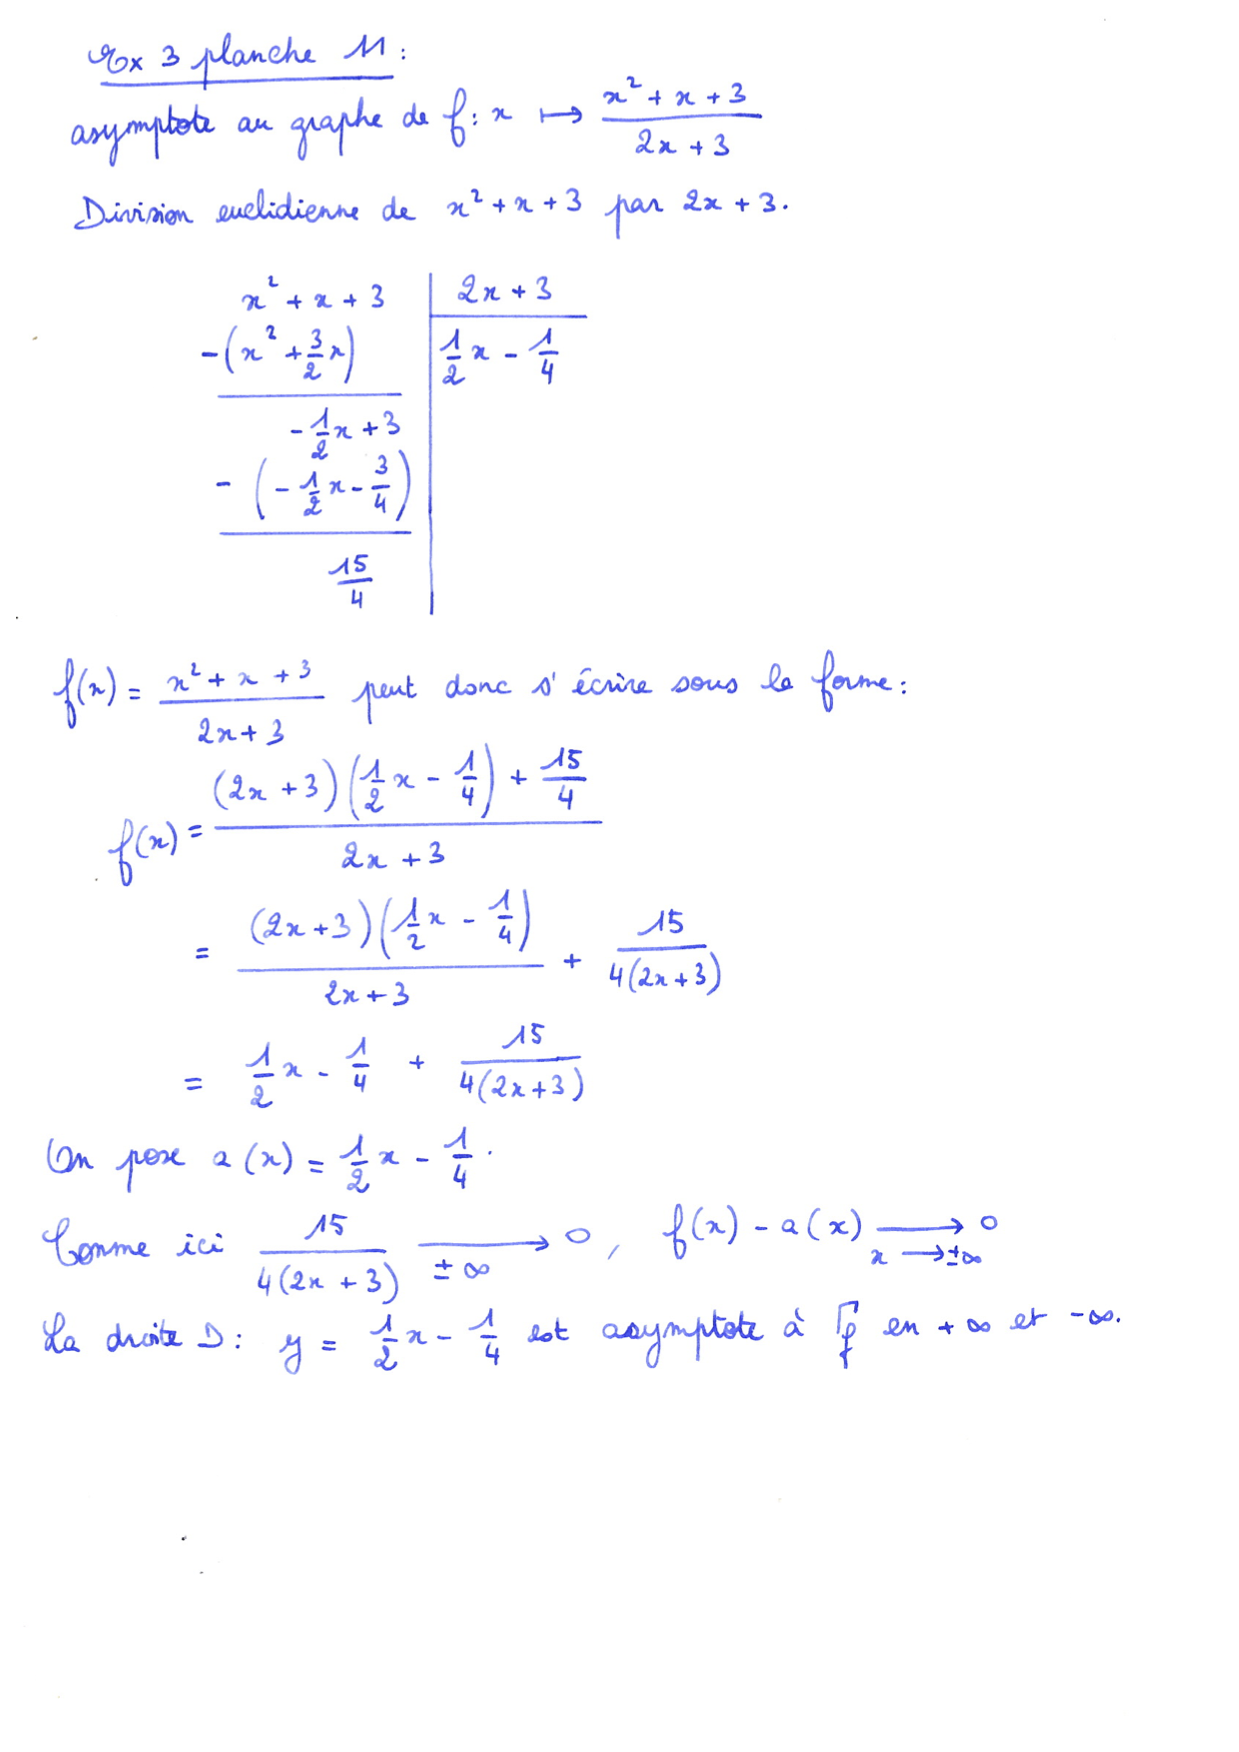 Ex 3 planche 11 :
asymptote au graphe de f : x ⟼ (x² + x + 3)/(2x + 3)
Division euclidienne de x² + x + 3 par 2x + 3.
x² + x + 3 | 2x + 3
-(x² + 3/2 x) | 1/2 x - 1/4
- 1/2 x + 3
- (- 1/2 x - 3/4)
15/4
f(x) = (x² + x + 3)/(2x + 3) peut donc s'écrire sous la forme :
f(x) = ((2x + 3)(1/2 x - 1/4) + 15/4)/(2x + 3)
= ((2x + 3)(1/2 x - 1/4))/(2x + 3) + 15/(4(2x + 3))
= 1/2 x - 1/4 + 15/(4(2x + 3))
On pose a(x) = 1/2 x - 1/4.
Comme ici 15/(4(2x + 3)) ⟶ ±∞ 0, f(x) - a(x) ⟶ x ⟶ ±∞ 0
La droite D : y = 1/2 x - 1/4 est asymptote à Γf en + ∞ et -∞.